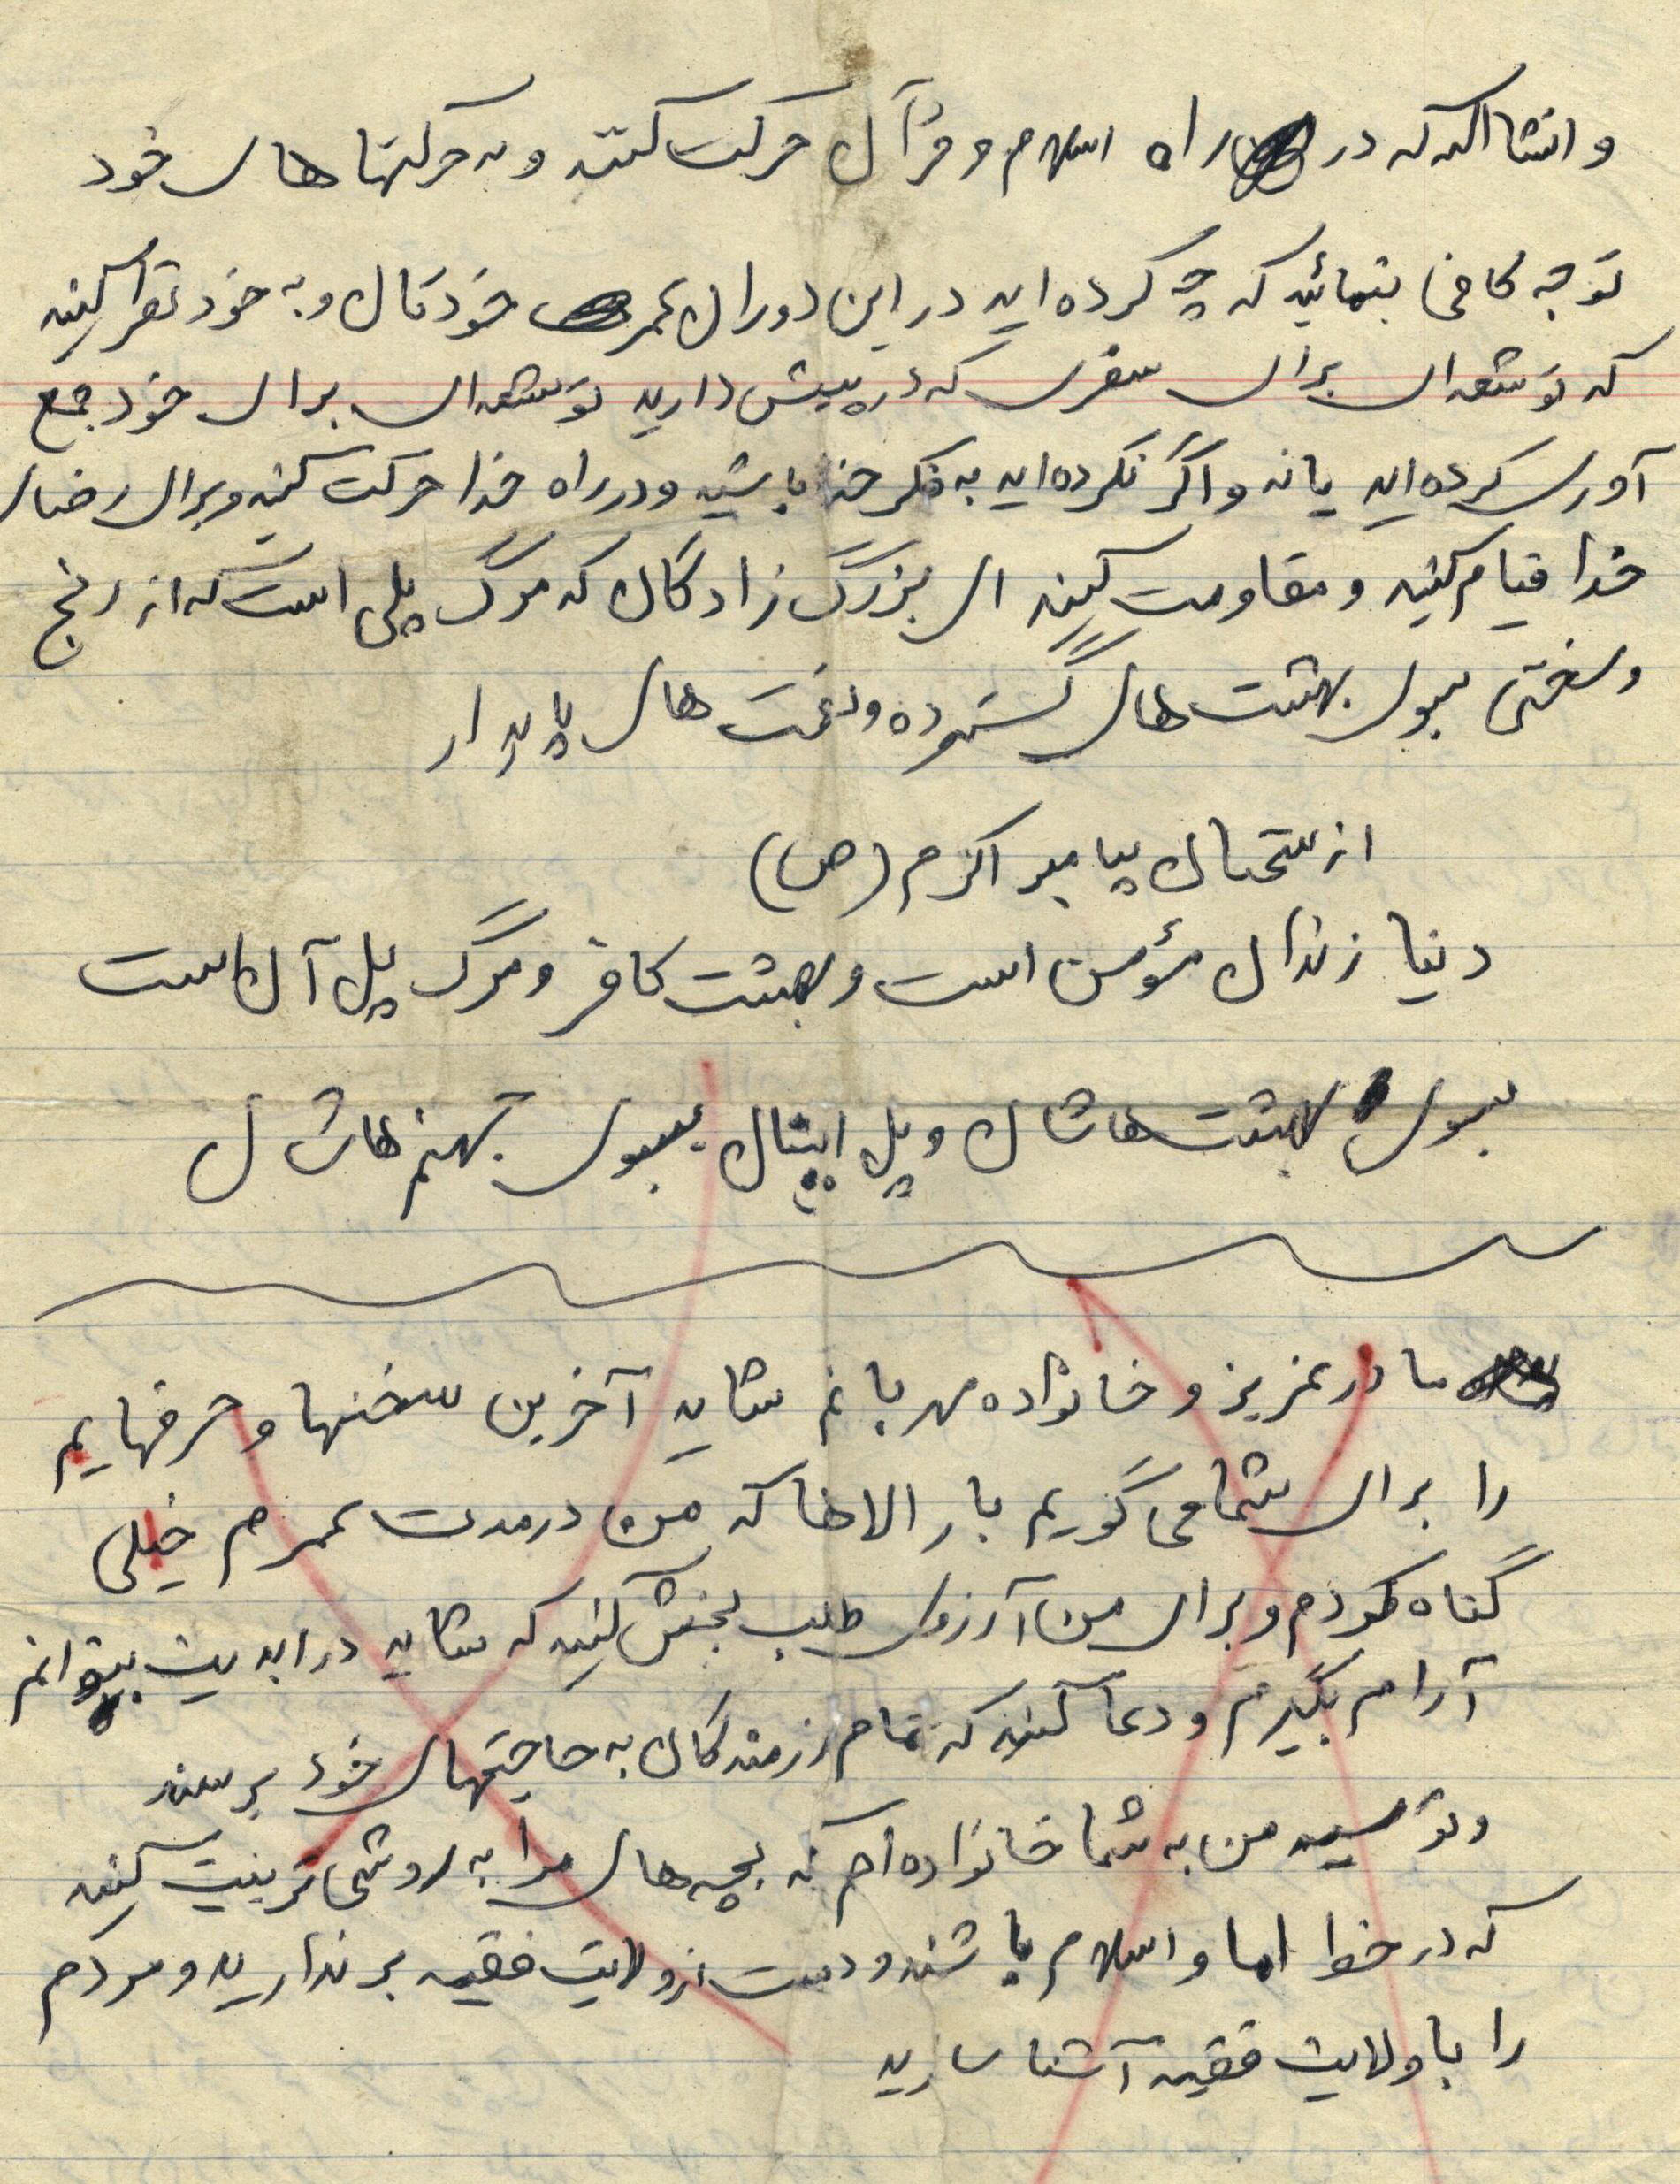 و انشاالله که در راه اسلام و قرآن حرکت کنند و به حرکتها های خود
توجه کافی بنمائید که چه کرده اید در این دوران عمر خودتان و به خود نظر کنید
که توشه ای برای سفری که در پیش دارید توشه ای برای خود جمع
آوری کرده اید یا نه و اگر نکرده اید به فکر خدا باشید و در راه خدا حرکت کنید و برای رضای
خدا قیام کنید و مقاومت کنید ای بزرگ زادگان که مرگ پلی است که از رنج
و سختی بسوی بهشت های گسترده و نعمت های پایدار
از سخنان پیامبر اکرم (ص)
دنیا زندان مؤمن است و بهشت کافر و مرگ پل آن است
بسوی بهشت هاشان و پل اینان بسوی جهنم هاشان
مادر عزیز و خانواده مهربانم شاید آخرین سخنها و حرفهایم
را برای شما می گویم بار الاها که من در مدت عمرم خیلی
گناه کردم و برای من آرزوی طلب بخشش کنید که شاید در ابدیت بیتوانم
آرام بگیرم و دعا کنید که تمام رزمندگان به حاجتهای خود برسند
و توسیه من به شما خانواده ام که بچه های مرا به روشی تربیت کنید
که در خط امام و اسلام باشند و دست از ولایت فقیه بر ندارید و مردم
را با ولایت فقیه آشنا سازید